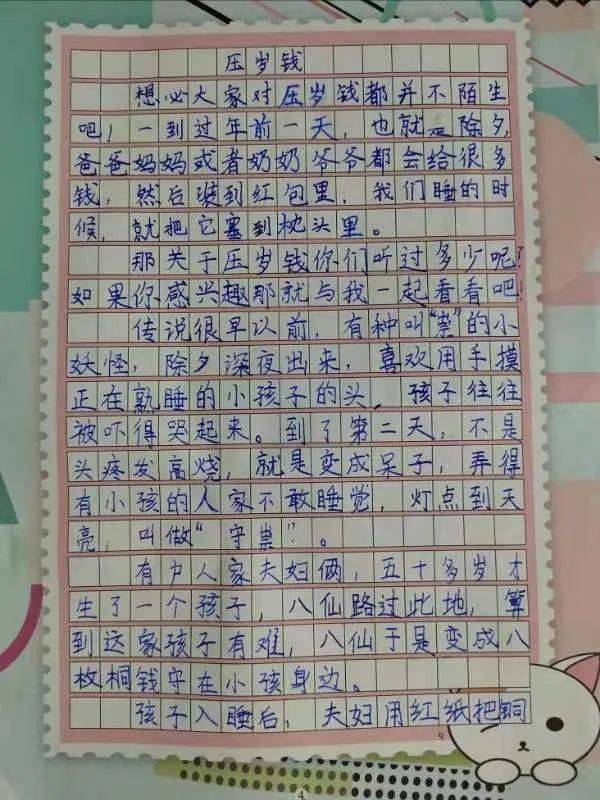 压岁钱
想必大家对压岁钱都并不陌生
吧！一到过年前一天，也就是除夕，
爸爸妈妈或者奶奶爷爷都会给很多
钱，然后装到红包里，我们睡的时
候，就把它塞到枕头里。
那关于压岁钱你们听过多少呢？
如果你感兴趣那就与我一起看看吧！
传说很早以前，有种叫“祟”的小
妖怪，除夕深夜出来，喜欢用手摸
正在熟睡的小孩子的头，孩子往往
被吓得哭起来。到了第二天，不是
头疼发高烧，就是变成呆子，弄得
有小孩的人家不敢睡觉，灯点到天
亮，叫做“守祟”。
有户人家夫妇俩，五十多岁才
生了一个孩子，八仙路过此地，算
到这家孩子有难，八仙于是变成八
枚桐钱守在小孩身边。
孩子入睡后，夫妇用红纸把铜
4